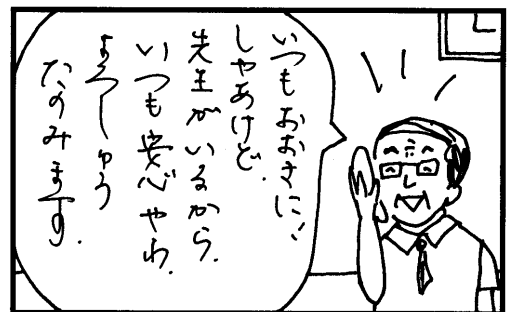 いつもおおきに!
しゃあけど、
先生がいるから、
いつも安心やわ。
よろしゅう
たのみます。